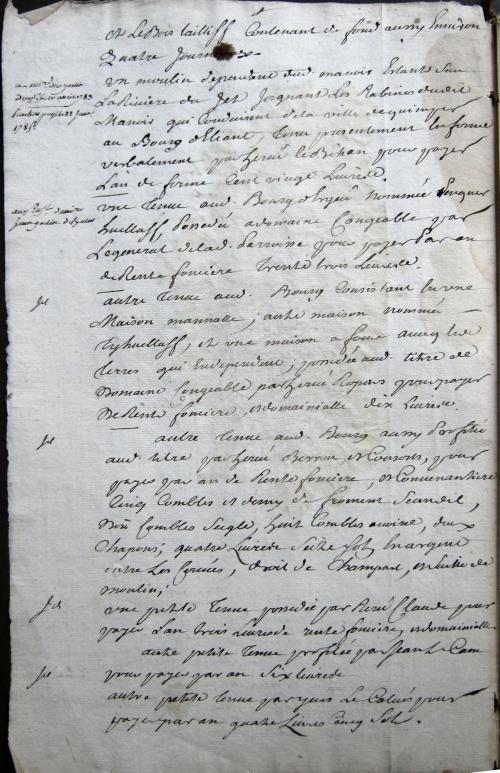 et Le Bois taillif Contenant de fond aussy Environ
quatre Journaux
un moulin dependant dud manoir Estant Sur
La Riviere du Jet Joignant Les Rabines dudit
Manoir qui Conduisent de la ville de quimper
au Bourg d'Eliant, tenu presentement En ferme
verbalement par hervé Le Bihan pour payer
L'an de ferme Cent vingt Livres
une tenue aud. Bourg d'Ergué nommée
huellaff possedée a domaine Congeable par
Le general de lad. parroisse pour payer par an
de Rente fonciere trente trois Livres
autre tenue aud. Bourg Consistant En une
Maison mannalle, autre maison nommée
Ty huellaff, et une maison a four avecq les
terres qui En dependent, possedée aud titre de
Domaine Congeable par hervé Ropars pour payer
De Rente fonciere, et domainialle dix Livres.
autre tenue aud Bourg aussy profitée
aud titre par hervé et Consorts, pour
payer par an de Rente fonciere, et Convenantiere
Cinq Combles et demy de froment
dix Combles Seigle, huit Combles avoine, deux
Chapons, quatre Livres Seize Sols En argent
outre Les Corvées, droit de Champart, et Suitte de
moulin;
une petite tenue possedée par René Claude pour
payer L'an trois Livres de rente fonciere, et domainialle
autre petite tenue profitée par Jean Le Cam
pour payer par an Six Livres
autre petite tenue par yves Le pour
payer par an quatre Livres Cinq Sols.